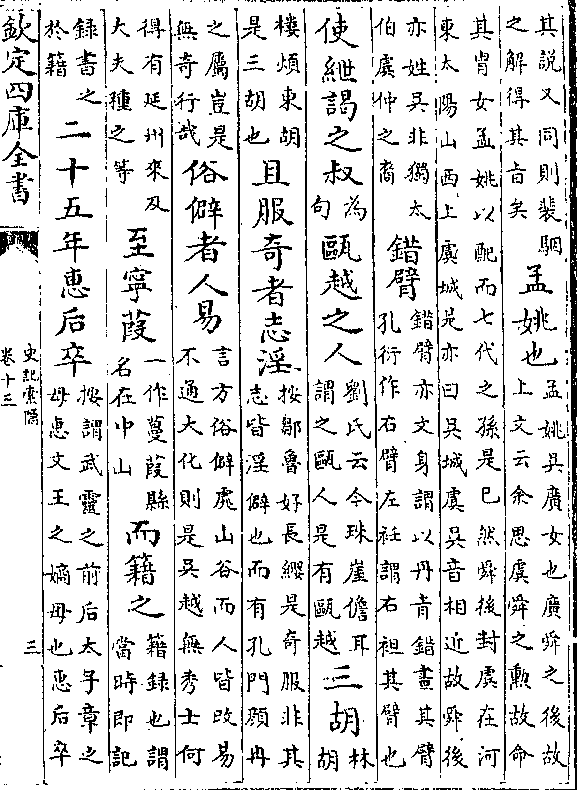 其說又同則裴駰之解得其旨矣孟姚也孟姚吳廣女也廣舜之後故上文云余思虞舜之勳故命
其胄女孟姚以配而七代之孫是已然舜後封虞在河東太陽山西上虞城是亦曰吳城虞吳音相近故舜後
亦姓吳非獨太伯虞仲之裔錯臂錯臂亦文身謂以丹青錯畫其臂孔衍作右臂左衽謂右袒其臂也
使緤謁之叔為句甌越之人劉氏云今珠崖儋耳謂之甌人是有甌越三胡林胡
樓煩東胡是三胡也且服奇者志淫按鄒魯好長纓是奇服非其志皆淫僻也而有孔門顏冉
之屬豈是無奇行哉俗僻者人易言方俗僻處山谷而人皆改易不通大化則是吳越無秀士何
得有延州來及大夫種之等至寧葭一作蔓葭縣名在中山而籍之籍録也謂當時即記
録書之於籍二十五年惠后卒按謂武靈之前后太子章之母惠文王之嫡母也惠后卒
欽定四庫全書
史記索隱
卷十三
三